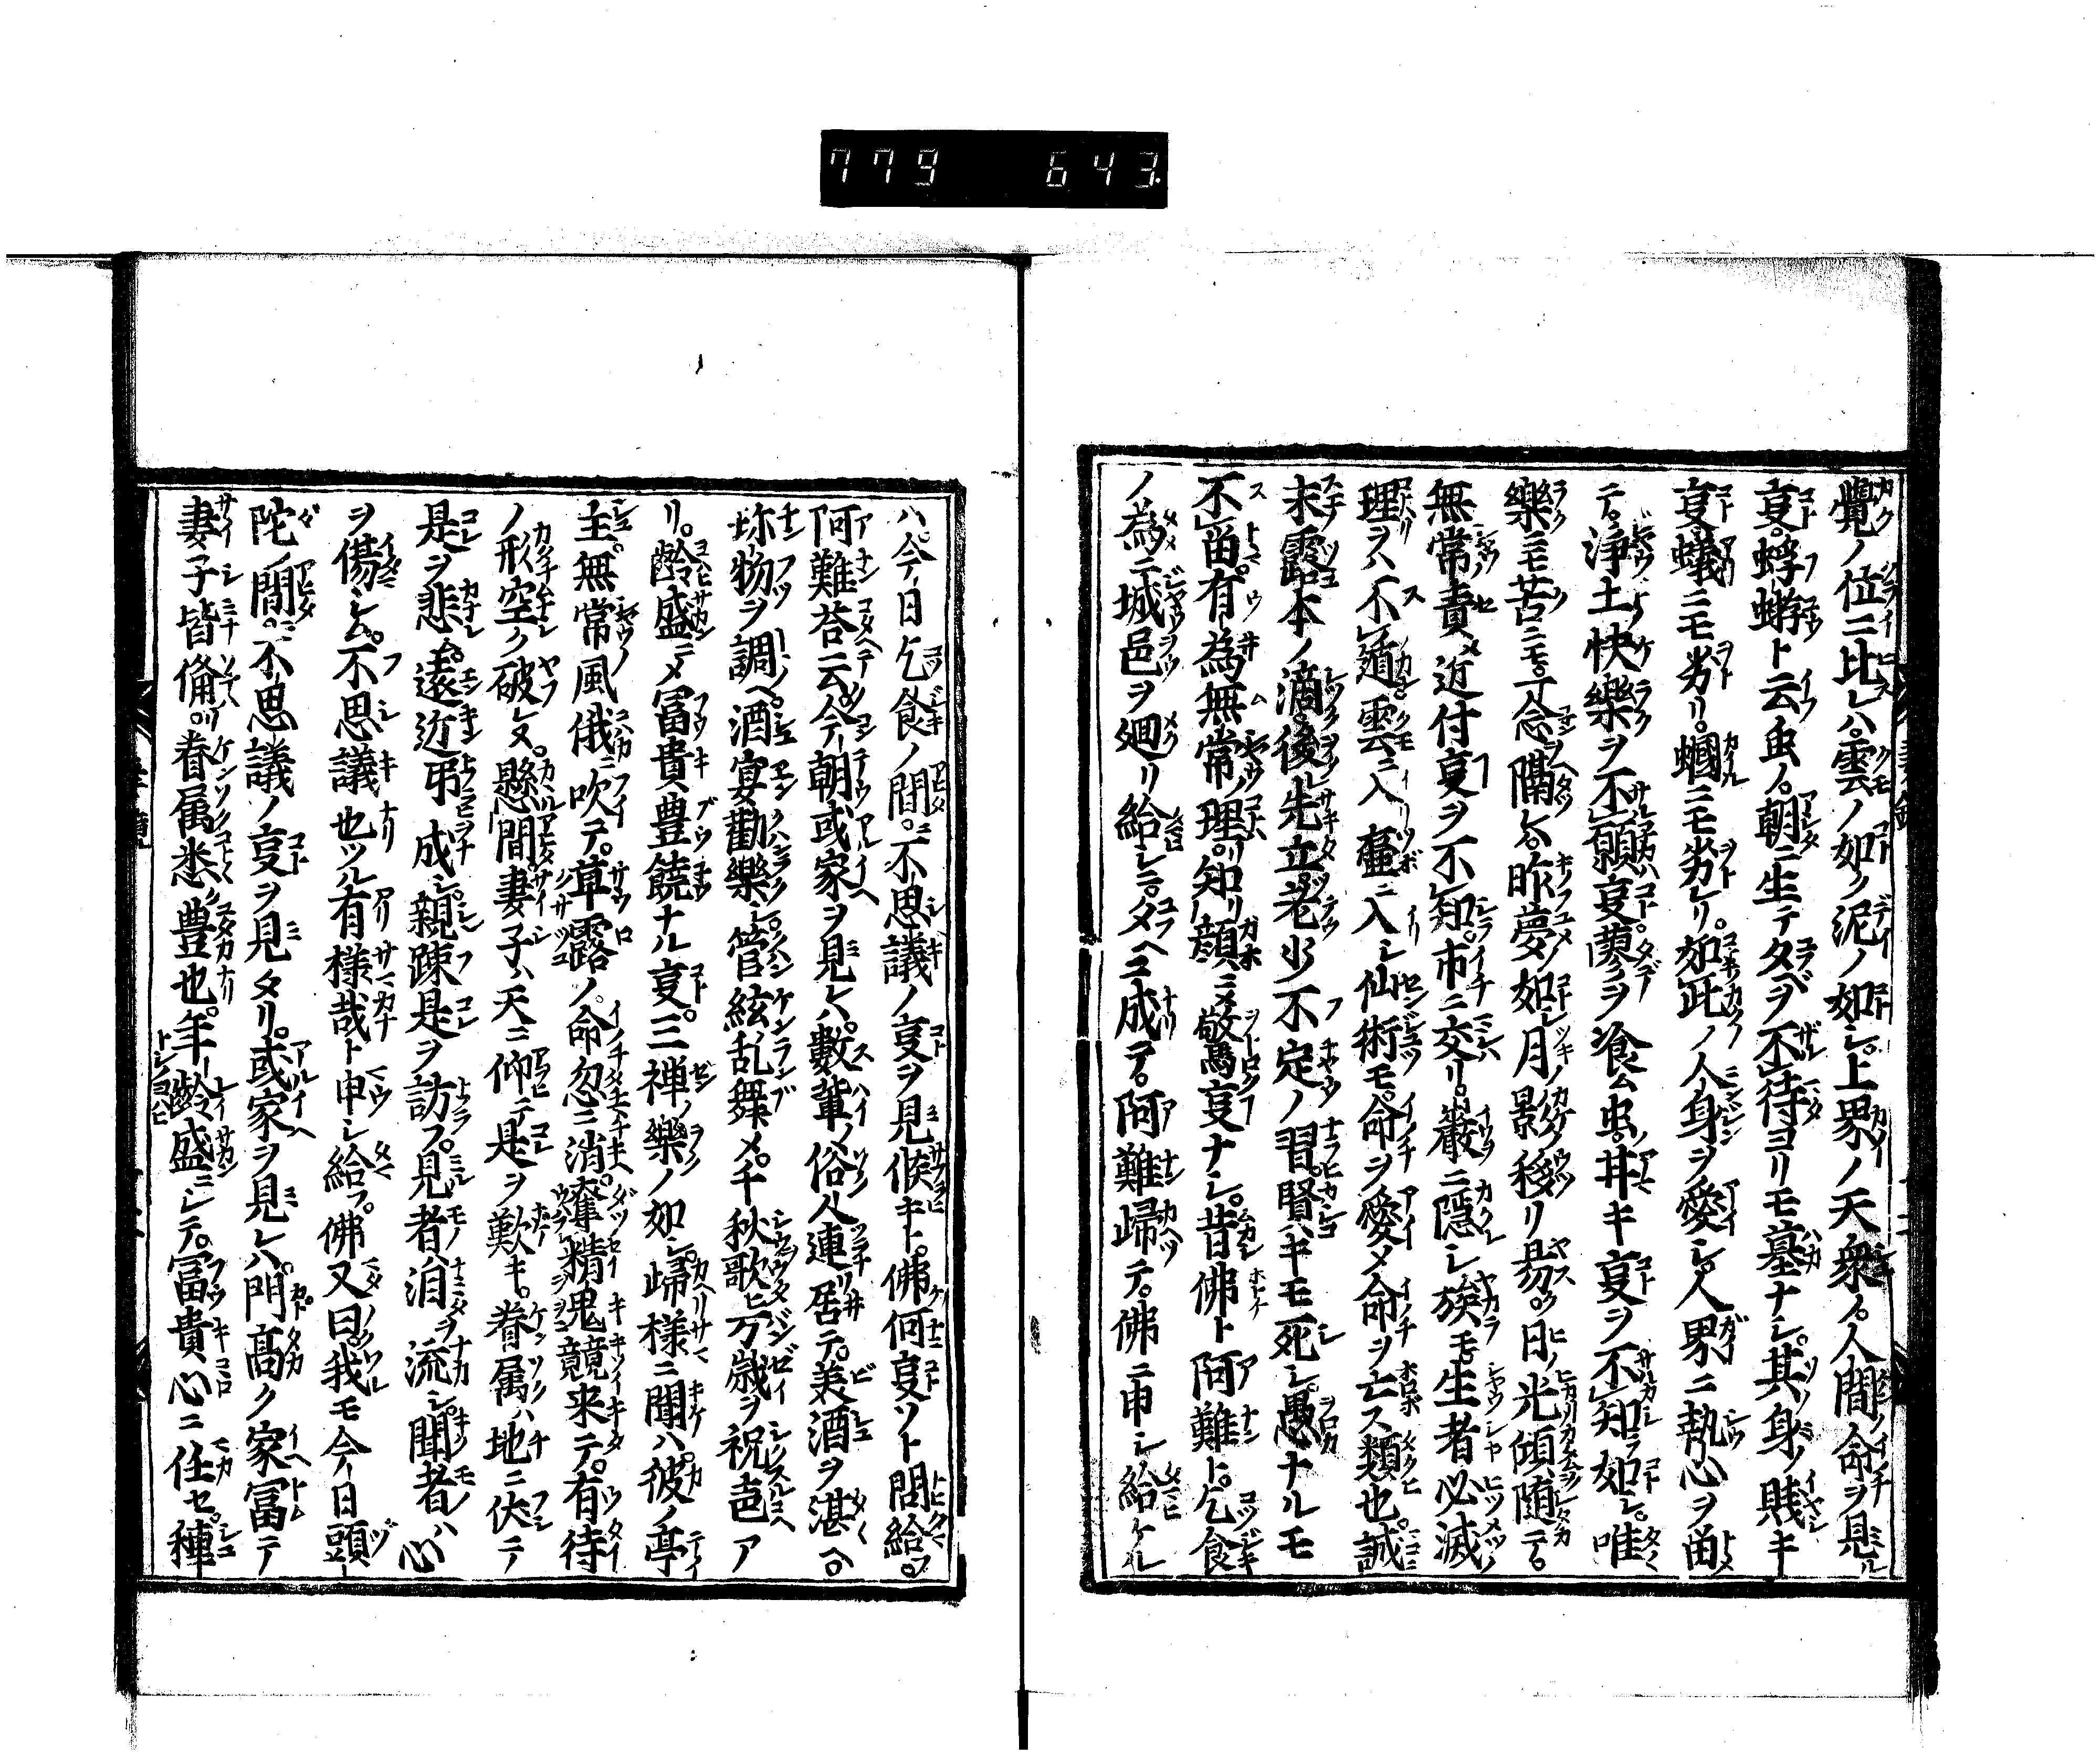 779 643
覺ノ位ニ比レハ。雲ノ如ク泥ノ如シ。上界ノ天衆ノ。人間ノ命ヲ見ル
叓。蜉蝣ト云虫ノ。朝ニ生テ夕ベヲ不待ヨリモ墓ナシ。其身ノ賤キ
叓。蟻ニモ劣リ。蟈ニモ劣レリ。如此ノ人身ヲ愛シ。人界ニ執心ヲ留
テ。淨土ノ快樂ヲ不願叓。蓼ヲ飡ム虫ノ。丼キ叓ヲ不知如シ。唯
樂ニモ苦ニモ。一念隔レハ。昨夢ノ如シ。月ノ影移リ易ク。日ノ光傾随テ。
無常ノ責メ近付叓ヲ不知。市ニ交リ。巖ニ隱レシ族モ。生者必滅ノ
理ヲハ不遁。雲ニ入リ壷ニ入シ仙術モ。命ヲ愛メ命ヲ亡ス類也。誠
末ノ露本ノ滴。後レ先立。老少不定ノ習。賢キモ死シ。愚ナルモ
不畄。有為無常ノ理リ。知リ顔ニメ。驚叓ナシ。昔佛ト阿難ト。乞食
ノ為ニ城邑ヲ廻リ給シニ。夕ヘニ成テ。阿難歸テ。佛ニ申シ給ケル
ハ。今日乞食ノ間ニ。不思議ノ叓ヲ見候キト。佛何叓ソト問給フ。
阿難荅云。今朝或家ヲ見レハ。數輩ノ俗人連リ居テ。美酒ヲ湛ヘ。
珎物ヲ調ヘ。酒宴勸樂シ。管絃乱舞メ。千秋歌ヒ万歳ヲ祝声ア
リ。齡盛ニメ冨貴豊饒ナル叓。三禅ノ樂ノ如シ。歸樣ニ聞ハ。彼ノ亭
主。無常ノ風俄ニ吹テ。草露ノ命忽ニ消。奪精鬼競来テ。有待
ノ形空ク破レヌ。懸間妻子ハ天ニ仰テ是ヲ歎キ。眷属ハ地ニ伏テ
是ヲ悲ム。遠近弔ヲ成シ。親踈是ヲ訪フ。見者ハ泪ヲ流シ。聞者ハ心
ヲ傷シム。不思議也ツル有樣哉ト申シ給フ。佛又曰。我モ今日頭
陀ノ間ニ。不思議ノ叓ヲ見タリ。或家ヲ見レハ。門髙ク家冨テ
妻子皆備リ。眷属悉ク豊也。年齡盛ニシテ。冨貴心ニ任セ。種